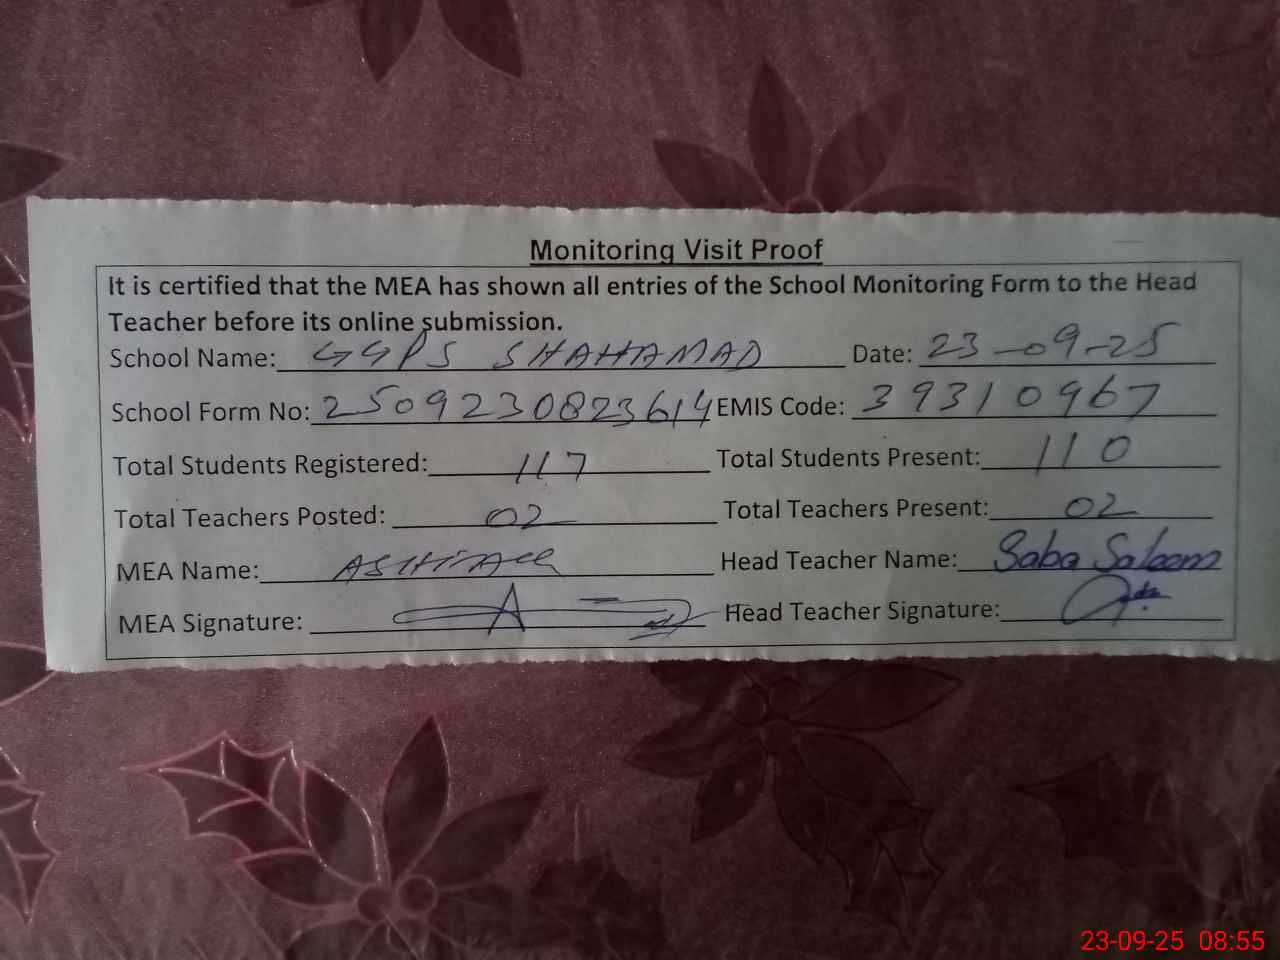 Monitoring Visit Proof
It is certified that the MEA has shown all entries of the School Monitoring Form to the Head
Teacher before its online submission.
School Name: GGPS SHAHAMAD Date: 23-09-25
School Form No: 2509230823614 EMIS Code: 39310967
Total Students Registered: 117 Total Students Present: 110
Total Teachers Posted: 02 Total Teachers Present: 02
MEA Name: Head Teacher Name: Saba Saleem
MEA Signature: Head Teacher Signature:
23-09-25 08:55